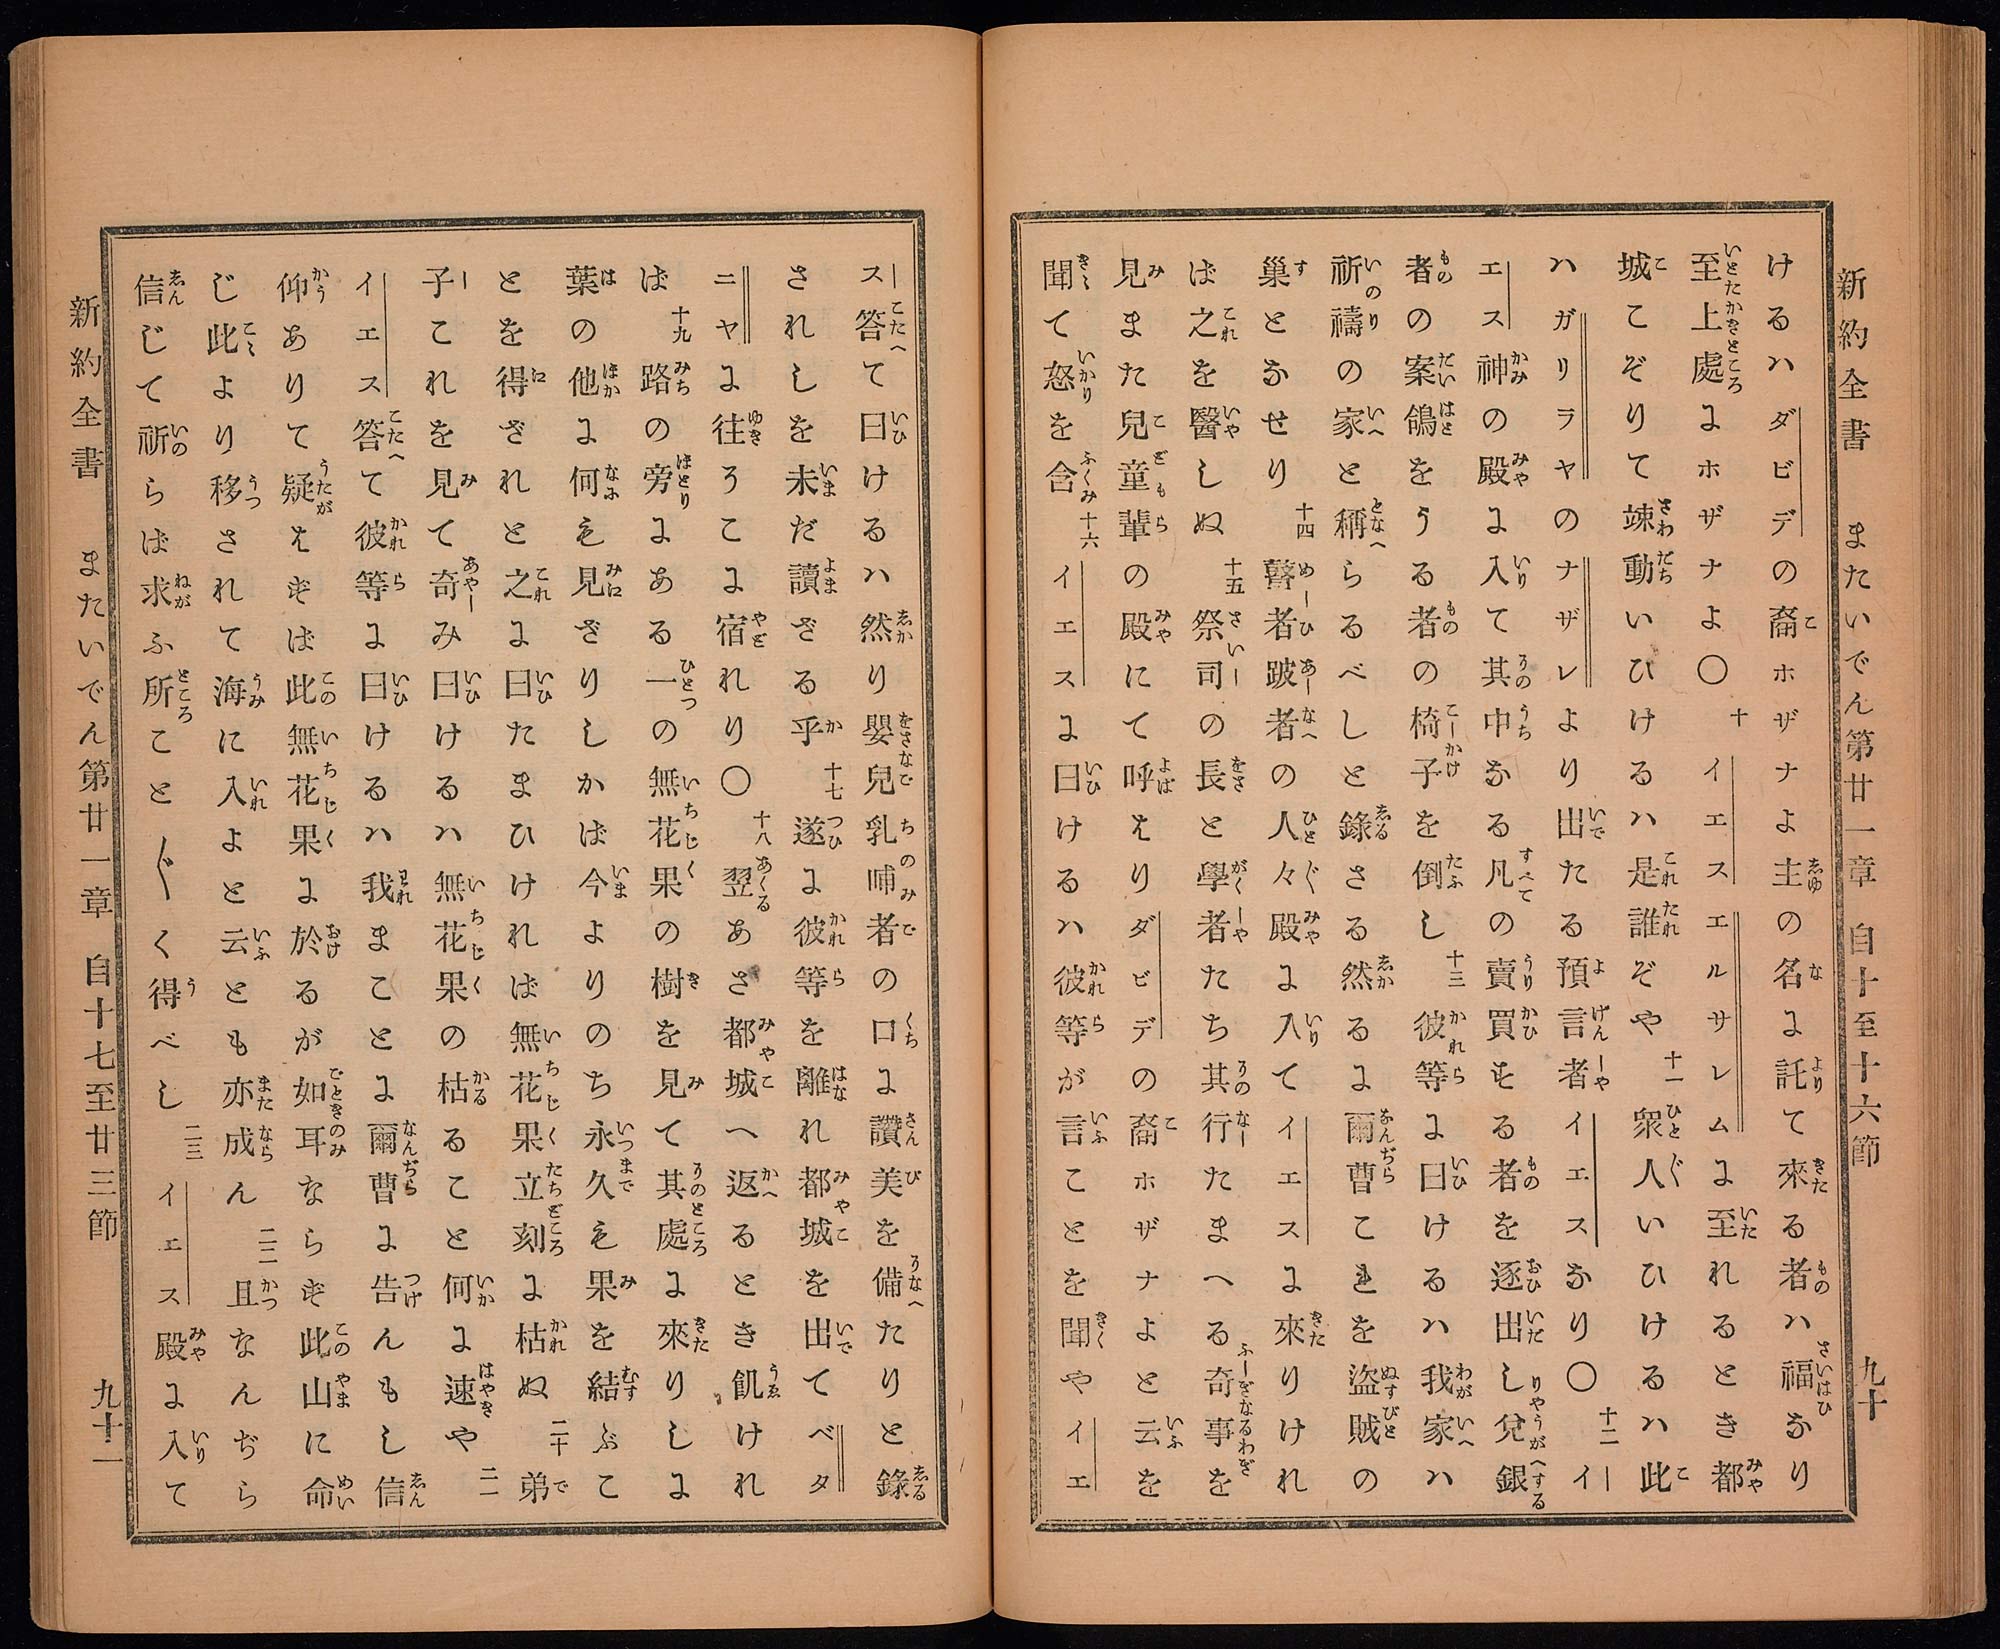 新約全書　またいでん第廿一章　自十至十六節　九十
けるハダビデの裔ホザナよ主の名に託て來る者ハ福なり
至上處にホザナよ〇十イエスエルサレムに至れるとき都
城こぞりて竦動いひけるハ是誰ぞや十一衆人いひけるハ此
ハガリラヤのナザレより出たる預言者イエスなり〇十二イ
エス神の殿に入て其中なる凡の賣買する者を逐出し兌銀
者の案鴿をうる者の椅子を倒し十三彼等に曰けるハ我家ハ
祈禱の家と稱らるべしと錄さる然るに爾曹これを盜賊の
巢となせり十四瞽者跛者の人々殿に入てイエスに來りけれ
ば之を醫しぬ十五祭司の長と學者たち其行たまへる奇事を
見また兒童輩の殿にて呼えりダビデの裔ホザナよと云を
聞て怒を含十六イエスに曰けるハ彼等が言ことを聞やイエ
ス答て曰けるハ然り嬰兒乳哺者の口に讚美を備たりと錄
されしを未だ讀ざる乎十七遂に彼等を離れ都城を出てベタ
ニヤに往そこに宿れり〇十八翌あさ都城へ返るとき飢けれ
ば十九路の旁にある一の無花果の樹を見て其處に來りしに
葉の他に何も見ざりしかば今よりのち永久も果を結ぶこ
とを得ざれと之に曰たまひければ無花果立刻に枯ぬ二十弟
子これを見て奇み曰けるハ無花果の枯ること何に速や二一
イエス答て彼等に曰けるハ我まことに爾曹に告んもし信
仰ありて疑ずば此無花果に於るが如耳ならず此山に命
じ此より移されて海に入よと云とも亦成ん二二且なんぢら
信じて祈らば求ふ所こと〴〵く得べし二三イエス殿に入て
新約全書　またいでん第廿一章　自十七至廿三節　九十一